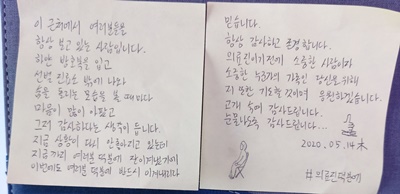 이 근처에서 여러분들을
항상 보고 있는 사람입니다.
하얀 방호복을 입고
선별 진료소 밖에 나와
숨을 돌리는 모습을 볼 때마다
마음이 많이 아팠고
그저 감사하다는 생각이 듭니다.
지금 상황이 다시 안좋아지고 있는데
지금까지 여러분 덕분에 잘 이겨냈기에
이번에도 여러분 덕분에 반드시 이겨내리라
믿습니다.
항상 감사하고 존경합니다.
의료진이기 전에 소중한 사람이자
소중한 누군가의 가족인 당신을 위해
저 또한 기도할 것이며 응원하겠습니다.
고개 숙여 감사드립니다...
눈물나도록 감사드립니다...
2020.05.14 木
#의료진덕분에